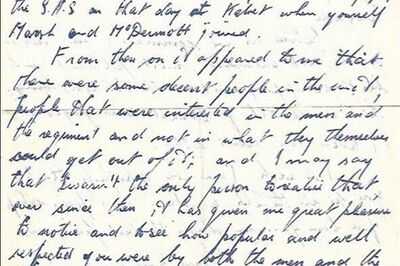 the S.A.S on that day at Kabrit when yourself
Marsh and McDermott joined.
From then on it appeared to me that
there were some decent people in the unit,
people that were interested in the men and
the regiment and not in what they themselves
could get out of it; and I may say
that I wasn't the only person to realise that
ever since then, it has given me great pleasure
to notice and to see how popular and well
respected you were by both the men and the